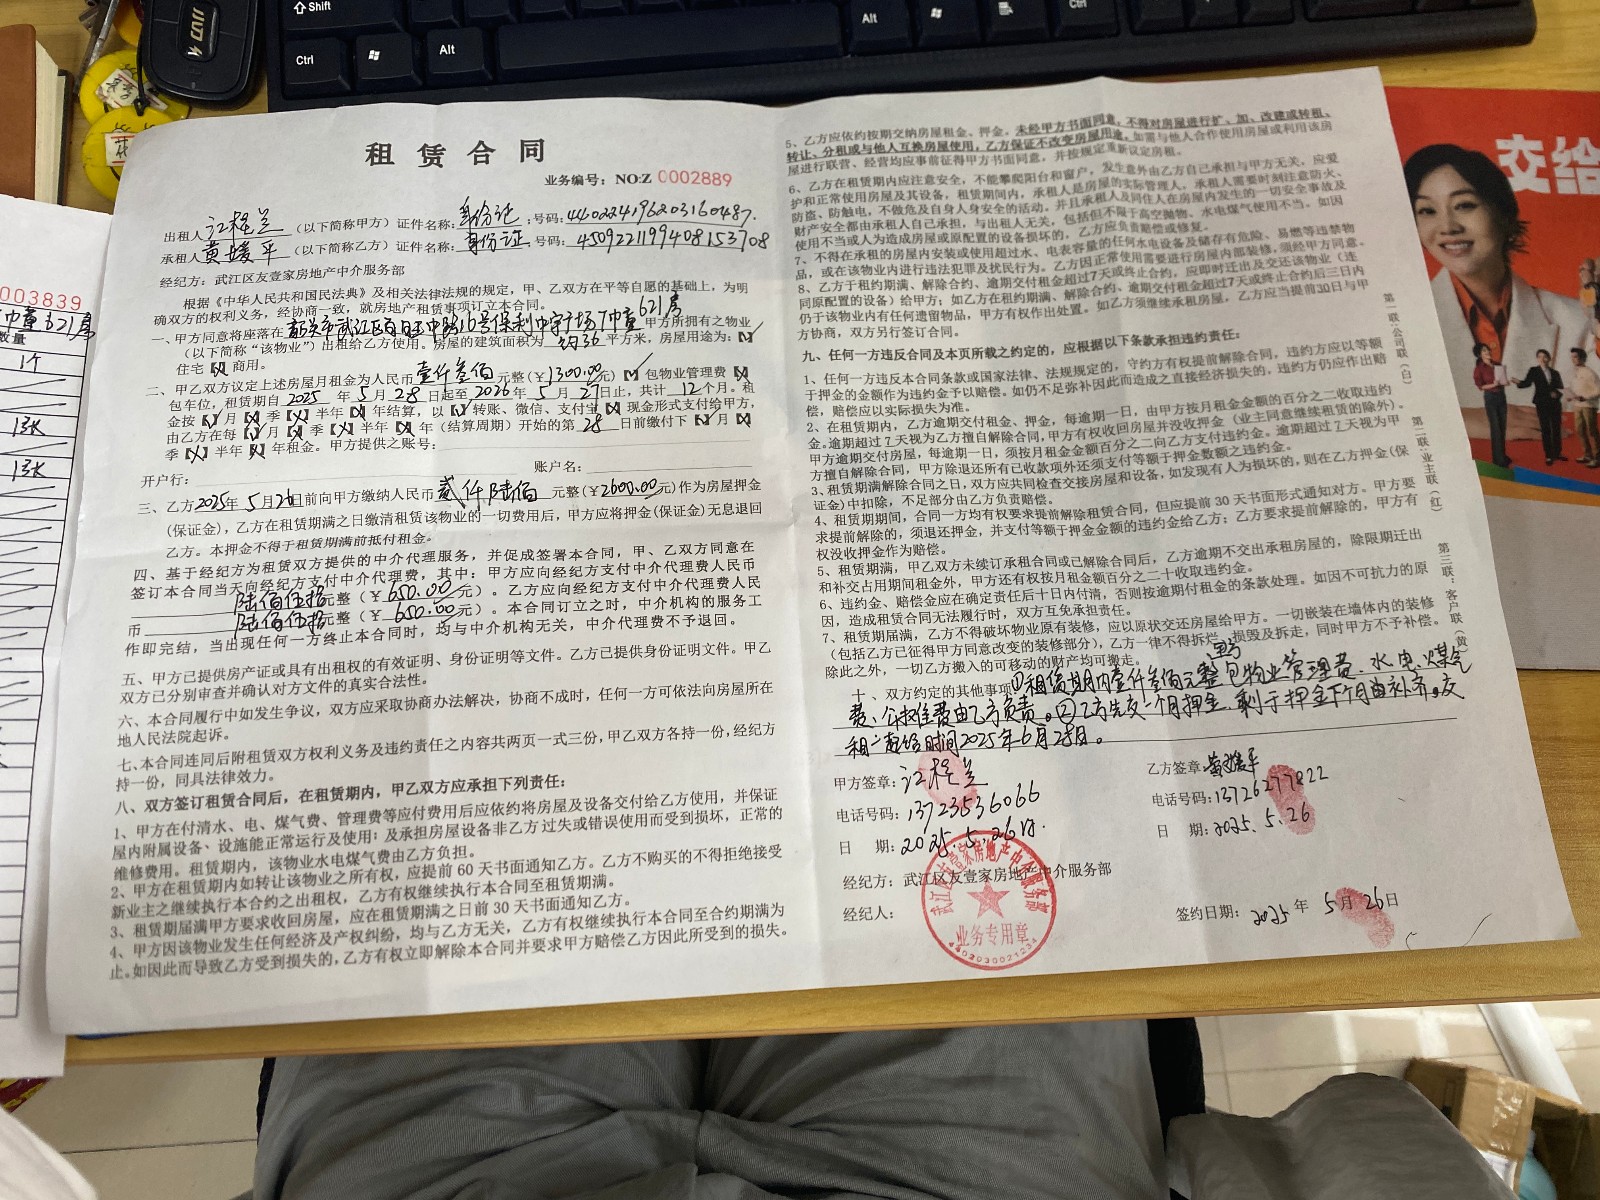 Shift
Ctrl
Alt
Alt
Ctrl
003839
数量
1个
1张
1张
交给
租赁合同
业务编号：NO:Z 0002889
出租人 江程兰（以下简称甲方）证件名称：身份证；号码：440224196203160487.
承租人 黄媛平（以下简称乙方）证件名称：身份证 号码：4509221199408153708
经纪方：武江区友壹家房地产中介服务部
根据《中华人民共和国民法典》及相关法律法规的规定，甲、乙双方在平等自愿的基础上，为明
确双方的权利义务，经协商一致，就房地产租赁事项订立本合同。
一、甲方同意将座落在 韶关市武江区百旺中路16号保利中宇广场7幢 621房 甲方所拥有之物业
（以下简称“该物业”）出租给乙方使用。房屋的建筑面积为 约36 平方米，房屋用途为：【✓】
住宅【×】商用。
二、甲乙双方议定上述房屋月租金为人民币 壹仟叁佰 元整（￥1300.00元）【✓】包物业管理费【×】
包车位，租赁期自 2025 年 5 月 28 日起至 2026 年 5 月 27 日止，共计 12 个月。租
金按【✓】月【×】季【×】半年【×】年结算，以【✓】转账、微信、支付宝【×】现金形式支付给甲方，
由乙方在每【✓】月【×】季【×】半年【×】年（结算周期）开始的第 28 日前缴付下【✓】月【×】
季【×】半年【×】年租金。甲方提供之账号：
开户行： 账户名：
三、乙方2025年 5月26日前向甲方缴纳人民币 贰仟陆佰 元整（￥2600.00元）作为房屋押金
（保证金），乙方在租赁期满之日缴清租赁该物业的一切费用后，甲方应将押金（保证金）无息退回
乙方。本押金不得于租赁期满前抵付租金。
四、基于经纪方为租赁双方提供的中介代理服务，并促成签署本合同，甲、乙双方同意在
签订本合同当天向经纪方支付中介代理费，其中：甲方应向经纪方支付中介代理费人民币
陆佰伍拾元整（￥650.00元）。乙方应向经纪方支付中介代理费人民
币 陆佰伍拾元整（￥650.00元）。本合同订立之时，中介机构的服务工
作即完结，当出现任何一方终止本合同时，均与中介机构无关，中介代理费不予退回。
五、甲方已提供房产证或具有出租权的有效证明、身份证明等文件。乙方已提供身份证明文件。甲乙
双方已分别审查并确认对方文件的真实合法性。
六、本合同履行中如发生争议，双方应采取协商办法解决，协商不成时，任何一方可依法向房屋所在
地人民法院起诉。
七、本合同连同后附租赁双方权利义务及违约责任之内容共两页一式三份，甲乙双方各持一份，经纪方
持一份，同具法律效力。
八、双方签订租赁合同后，在租赁期内，甲乙双方应承担下列责任：
1、甲方在付清水、电、煤气费、管理费等应付费用后应依约将房屋及设备交付给乙方使用，并保证
屋内附属设备、设施能正常运行及使用；及承担房屋设备非乙方过失或错误使用而受到损坏，正常的
维修费用。租赁期内，该物业水电煤气费由乙方负担。
2、甲方在租赁期内如转让该物业之所有权，应提前 60 天书面通知乙方。乙方不购买的不得拒绝接受
新业主之继续执行本合约之出租权，乙方有权继续执行本合同至租赁期满。
3、租赁期届满甲方要求收回房屋，应在租赁期满之日前 30 天书面通知乙方。
4、甲方因该物业发生任何经济及产权纠纷，均与乙方无关，乙方有权继续执行本合同至合约期满为
止。如因此而导致乙方受到损失的，乙方有权立即解除本合同并要求甲方赔偿乙方因此所受到的损失。
5、乙方应依约按期交纳房屋租金、押金。未经甲方书面同意，不得对房屋进行扩、加、改建或转租、
转让、分租或与他人互换房屋使用，乙方保证不改变房屋用途。如需与他人合作使用房屋或利用该房
屋进行联营、经营均应事前征得甲方书面同意，并按规定重新议定房租。
6、乙方在租赁期内应注意安全，不能攀爬阳台和窗户，发生意外由乙方自己承担与甲方无关，应爱
护和正常使用房屋及其设备，租赁期间内，承租人是房屋的实际管理人，承租人需要时刻注意防火、
防盗、防触电，不做危及自身人身安全的活动，并且承租人及同住人在房屋内发生的一切安全事故及
财产安全都由承租人自己承担，与出租人无关，包括但不限于高空抛物、水电煤气使用不当。如因
使用不当或人为造成房屋或原配置的设备损坏的，乙方应负责赔偿或修复。
7、不得在承租的房屋内安装或使用超过水、电表容量的任何水电设备及储存有危险、易燃等违禁物
品，或在该物业内进行违法犯罪及扰民行为。乙方因正常使用需要进行房屋内部装修，须经甲方同意。
8、乙方于租约期满、解除合约、逾期交付租金超过7天或终止合约，应即时迁出及交还该物业（连
同原配置的设备）给甲方；如乙方在租约期满、解除合约、逾期交付租金超过7天或终止合约后三日内
仍于该物业内有任何遗留物品，甲方有权作出处置。如乙方须继续承租房屋，乙方应当提前30日与甲
方协商，双方另行签订合同。
九、任何一方违反合同及本页所载之约定的，应根据以下条款承担违约责任：
1、任何一方违反本合同条款或国家法律、法规规定的，守约方有权提前解除合同，违约方应以等额
于押金的金额作为违约金予以赔偿。如仍不足弥补因此而造成之直接经济损失的，违约方仍应作出赔
偿，赔偿应以实际损失为准。
2、在租赁期内，乙方逾期交付租金、押金，每逾期一日，由甲方按月租金金额的百分之二收取违约
金。逾期超过 7 天视为乙方擅自解除合同，甲方有权收回房屋并没收押金（业主同意继续租赁的除外）。
甲方逾期交付房屋，每逾期一日，须按月租金金额百分之二向乙方支付违约金。逾期超过 7 天视为甲
方擅自解除合同，甲方除退还所有已收款项外还须支付等额于押金数额之违约金。
3、租赁期满解除合同之日，双方应共同检查交接房屋和设备，如发现有人为损坏的，则在乙方押金（保
证金）中扣除，不足部分由乙方负责赔偿。
4、租赁期期间，合同一方均有权要求提前解除租赁合同，但应提前 30 天书面形式通知对方。甲方要
求提前解除的，须退还押金，并支付等额于押金金额的违约金给乙方；乙方要求提前解除的，甲方有
权没收押金作为赔偿。
5、租赁期满，甲乙双方未续订承租合同或已解除合同后，乙方逾期不交出承租房屋的，除限期迁出
和补交占用期间租金外，甲方还有权按月租金额百分之二十收取违约金。
6、违约金、赔偿金应在确定责任后十日内付清，否则按逾期付租金的条款处理。如因不可抗力的原
因，造成租赁合同无法履行时，双方互免承担责任。
7、租赁期届满，乙方不得破坏物业原有装修，应以原状交还房屋给甲方。一切嵌装在墙体内的装修
（包括乙方已征得甲方同意改变的装修部分），乙方一律不得拆烂、损毁及拆走，同时甲方不予补偿。
除此之外，一切乙方搬入的可移动的财产均可搬走。
十、双方约定的其他事项：①租赁期内壹仟叁佰元整包物业管理费、水、电、煤气
费、公摊维费由乙方负责。②乙方先交一个月押金，剩于押金下个月由补齐。交
租一起给时间2025年6月28日。
甲方签章：江程兰
电话号码：13723536066
日 期：2025.5.26日.
经纪方：武江区友壹家房地产中介服务部
经纪人：
乙方签章：黄媛平
电话号码：13726277822
日 期：2025.5.26
签约日期：2025 年 5 月 26 日
武江区友壹家房地产中介服务部
业务专用章
第一联：公司联（白）
第二联：业主联（红）
第三联：客户联（黄）